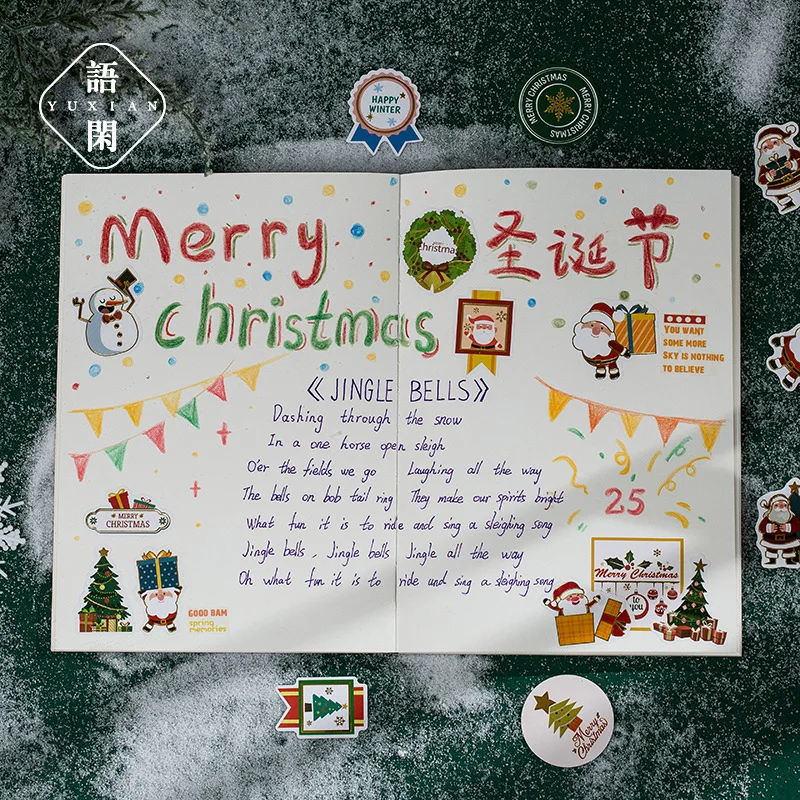 語
YUXIAN
閑
HAPPY
WINTER
MERRY CHRISTMAS
MERRY CHRISTMAS
Merry
Christmas
圣诞节
christmas
YOU WANT
SOME MORE
SKY IS NOTHING
TO BELIEVE
《JINGLE BELLS》
Dashing through the snow
In a one horse open sleigh
O'er the fields we go Laughing all the way
The bells on bob tail ring They make our spirits bright
What fun it is to ride and sing a sleighing song
Jingle bells, Jingle bells Jingle all the way
Oh what fun it is to ride and sing a sleighing song
25
MERRY
CHRISTMAS
GOOD BAM
spring
memories
Merry Christmas
to
you
Merry
Christmas